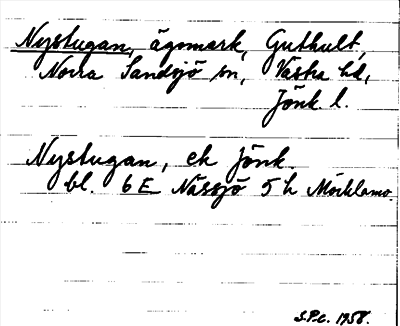 Nystugan, ägomark, Guthult,
Norra Sandsjö sn, Västra hd,
Jönk l.
Nystugan, ek Jönk.
bl. 6 E Nässjö 5 h Möcklamo.
S.P.C. 1958.